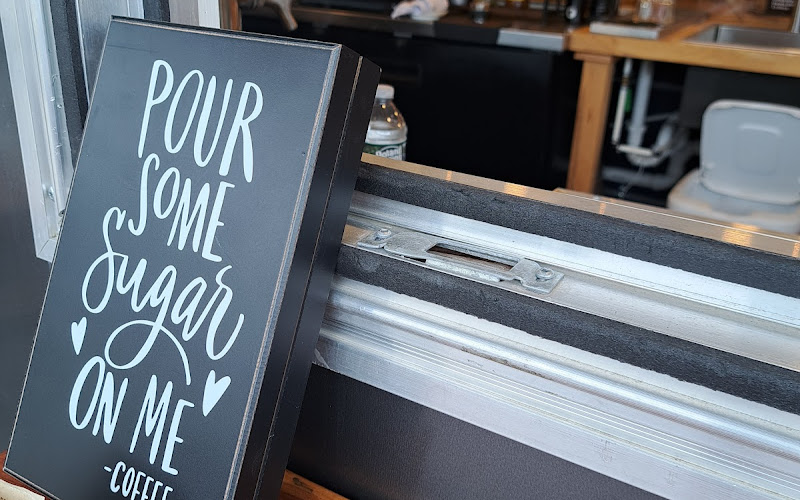 POUR
SOME
Sugar
ON ME
-COFFEE